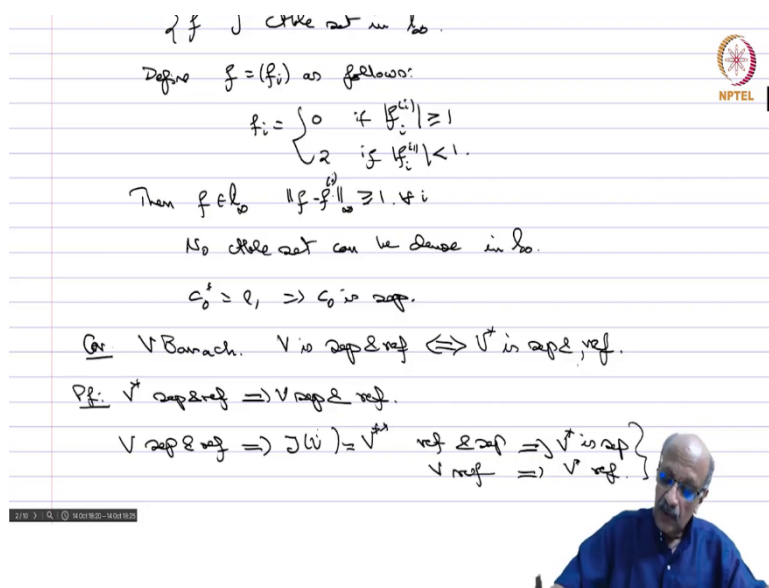 {f } ctble set in l∞.
Define f = (fᵢ) as follows:
fᵢ = { 0 if |fᵢ⁽ⁱ⁾| ≥ 1
2 if |fᵢ⁽ⁱ⁾| < 1.
Then f ∈ l∞ ‖f - f⁽ⁱ⁾‖∞ ≥ 1. ∀ i
No ctble set can be dense in l∞.
c₀* = l₁ ⇒ c₀ is sep.
Cor. V Banach. V is sep & ref ⇔ V* is sep &, ref.
Pf: V* sep & ref ⇒ V sep & ref.
V sep & ref ⇒ J(V) = V** ref & sep ⇒ V* is sep }
V ref ⇒ V* ref. }
NPTEL
2/10 14 Oct 18:20–14 Oct 18:25